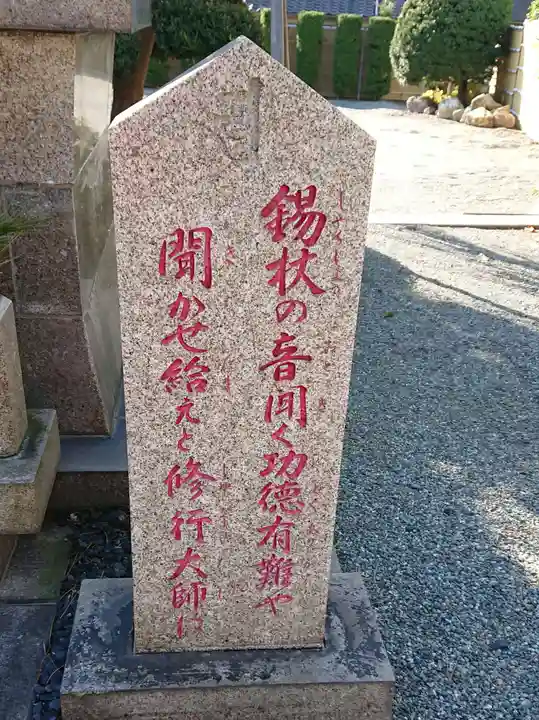 錫杖の音聞く功徳有難や
聞かせ給えと修行大師に